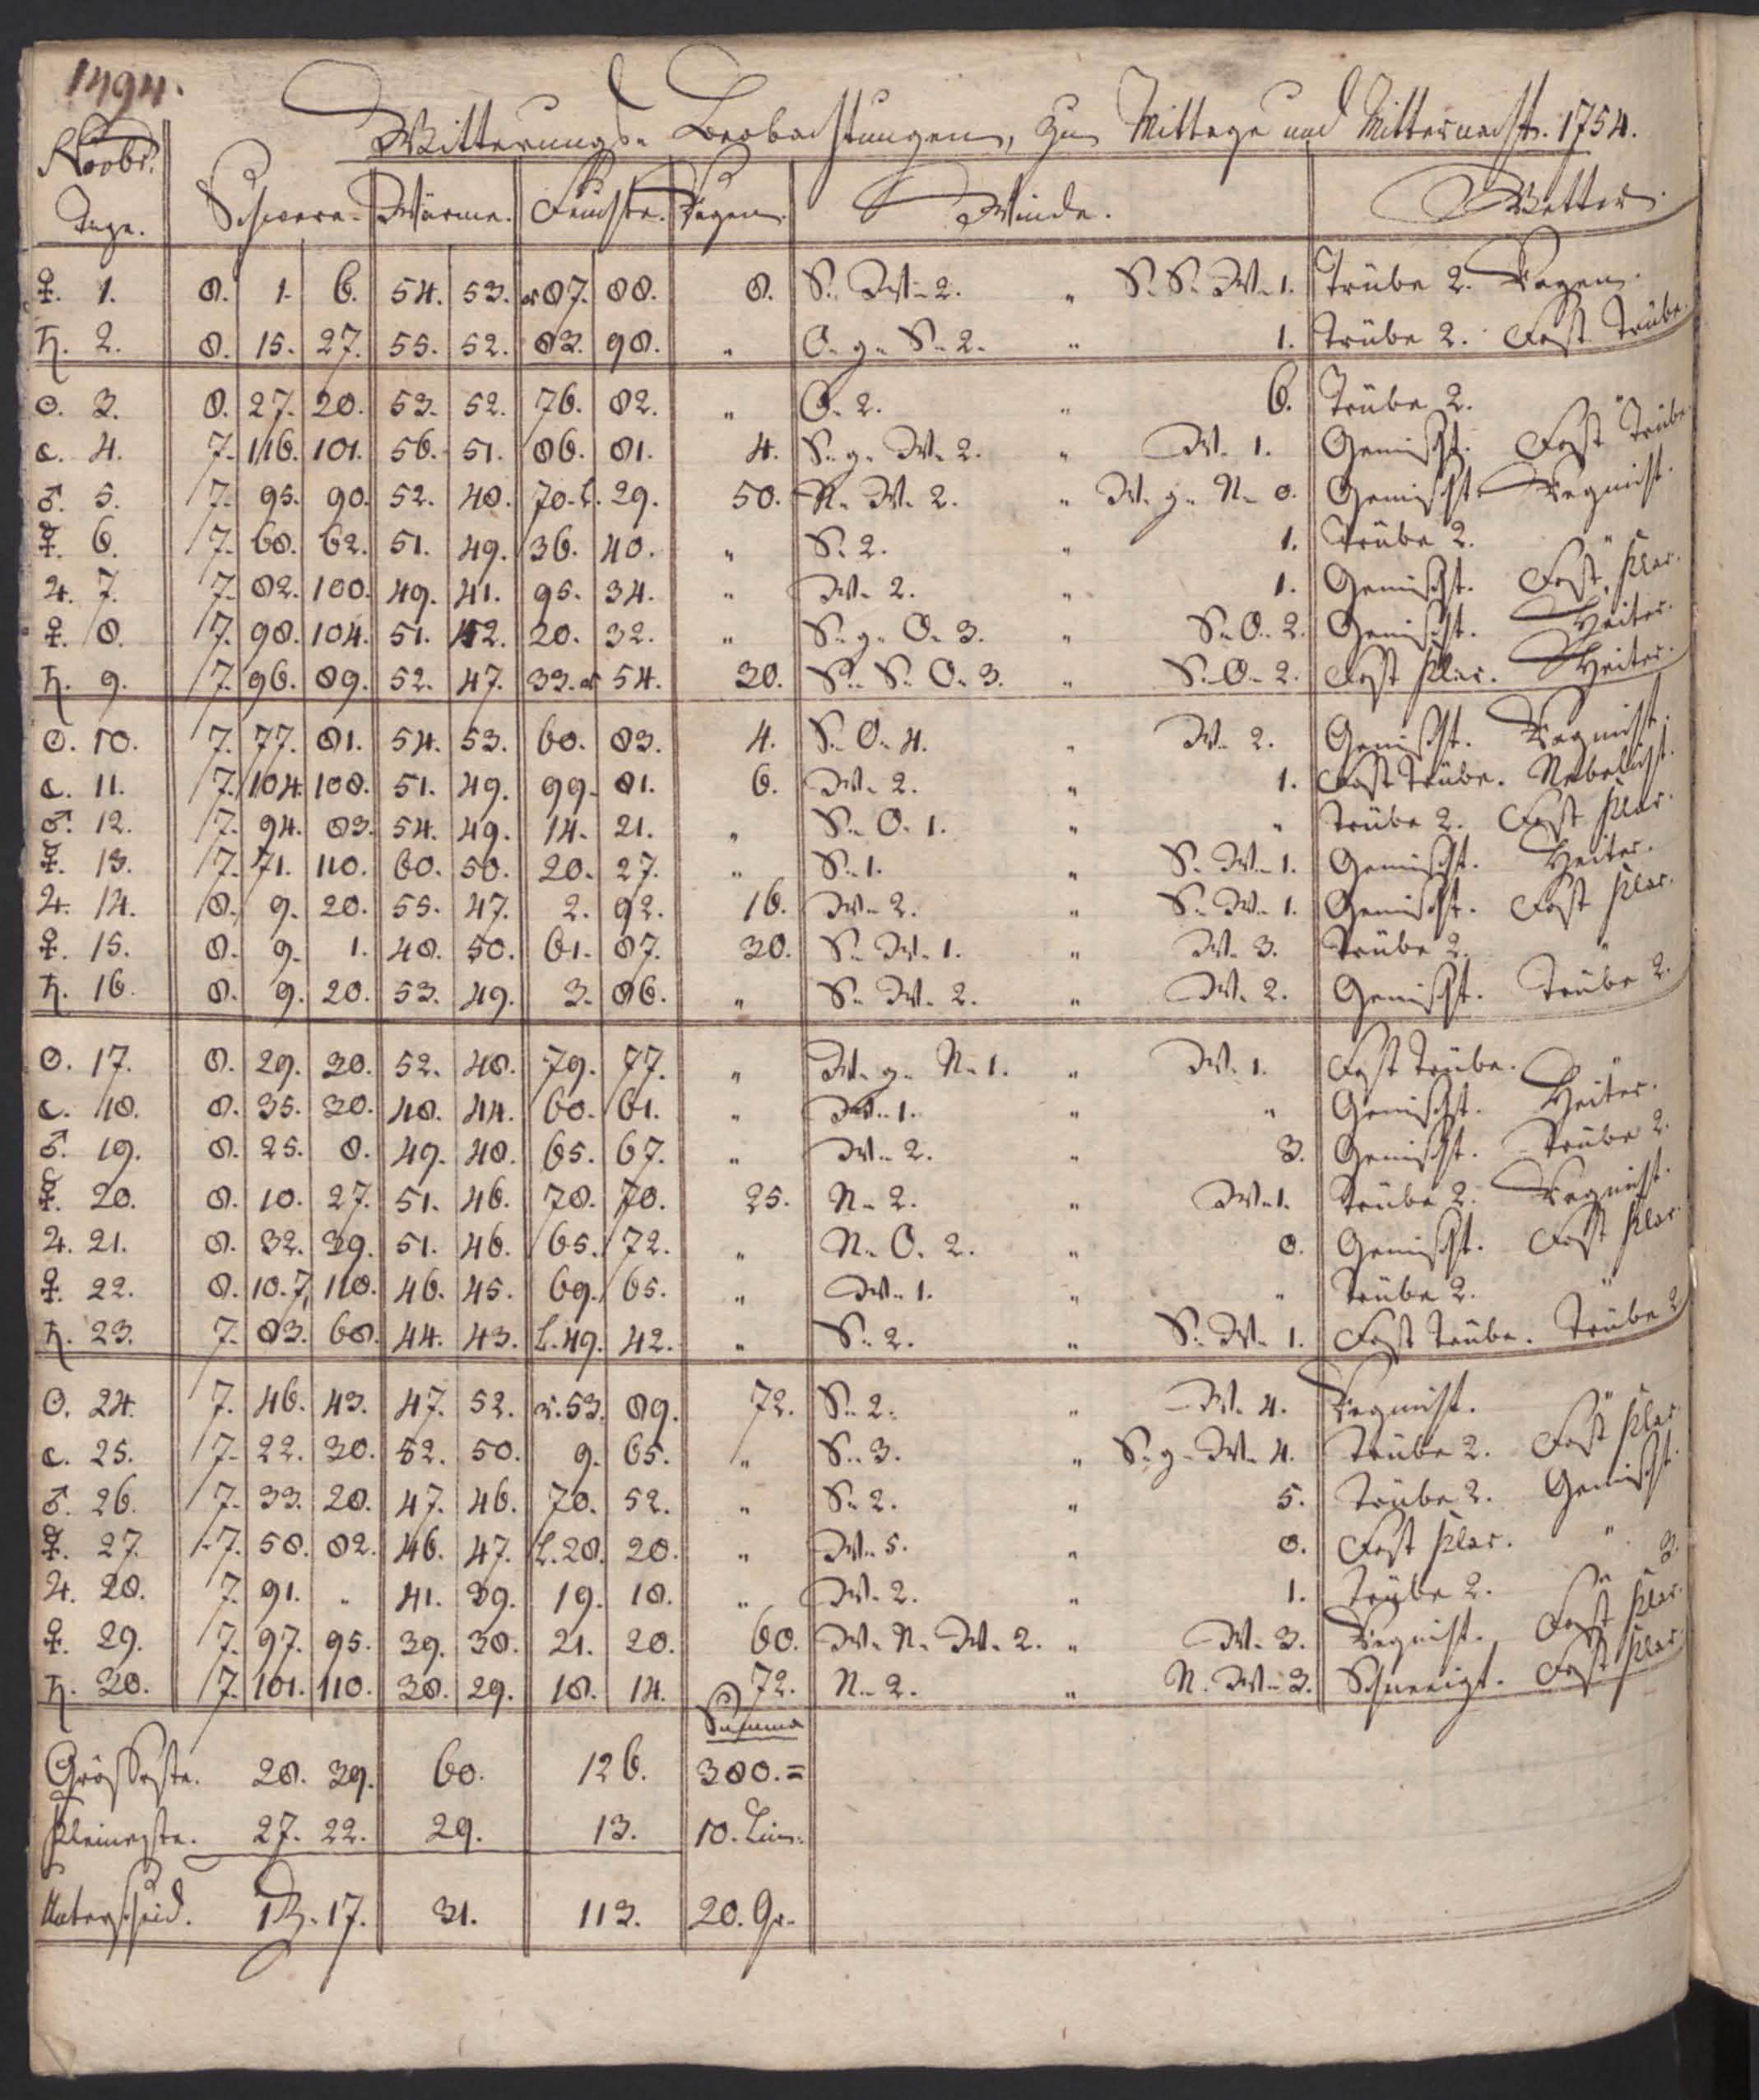 1494.
Witterungs- Beobachtungen, zu Mittage und Mitternacht. 1754.
Novbr.
Tage. Schwere. Wärme. Feuchte. Regen. Winde. Wetter.
♀. 1. 8. 1. 6. 54. 53. r 87. 88. 8. S. W. 2. „ S. S. W. 1. Trübe 2. Regen.
♄. 2. 8. 15. 27. 55. 52. 83. 98. „ O. g. S. 2. „ 1. Trübe 2. Fast Trübe.
☉. 3. 8. 27. 20. 53. 52. 76. 82. „ O. 2. „ 6. Trübe 2. „
☾. 4. 7. 116. 101. 56. 51. 86. 81. 4. S. g. W. 2. „ W. 1. Gemischt. Fast Trübe.
♂. 5. 7. 95. 90. 52. 48. 70. L. 29. 50. N. W. 2. „ W. g. N. 0. Gemischt. Regnicht.
☿. 6. 7. 68. 62. 51. 49. 36. 40. „ S. 2. „ 1. Trübe 2. „
♃. 7. 7. 82. 100. 49. 41. 95. 34. „ W. 2. „ 1. Gemischt. Fast klar.
♀. 8. 7. 98. 104. 51. 42. 20. 32. „ S. g. O. 3. „ S. O. 2. Gemischt. Heiter.
♄. 9. 7. 96. 89. 52. 47. 33. r 54. 30. S. S. O. 3. „ S. O. 2. Fast klar. Heiter.
☉. 10. 7. 77. 81. 54. 53. 60. 83. 4. S. O. 4. „ W. 2. Gemischt. Regnicht.
☾. 11. 7. 104. 108. 51. 49. 99. 81. 6. W. 2. „ 1. Fast Trübe. Nebelicht.
♂. 12. 7. 94. 83. 54. 49. 14. 21. „ S. O. 1. „ „ Trübe 2. Fast klar.
☿. 13. 7. 71. 110. 60. 50. 20. 27. „ S. 1. „ S. W. 1. Gemischt. Heiter.
♃. 14. 8. 9. 20. 55. 47. 2. 92. 16. W. 2. „ S. W. 1. Gemischt. Fast klar.
♀. 15. 8. 9. 1. 48. 50. 61. 87. 30. S. W. 1. „ W. 3. Trübe 2. „
♄. 16. 8. 9. 20. 53. 49. 3. 86. „ S. W. 2. „ W. 2. Gemischt. Trübe 2.
☉. 17. 8. 29. 30. 52. 48. 79. 77. „ W. g. N. 1. „ W. 1. Fast Trübe. „
☾. 18. 8. 35. 30. 48. 44. 60. 61. „ W. 1. „ „ Gemischt. Heiter.
♂. 19. 8. 25. 8. 49. 48. 65. 67. „ W. 2. „ 3. Gemischt. Trübe 2.
☿. 20. 8. 10. 27. 51. 46. 78. 70. 25. N. 2. „ W. 1. Trübe 2. Regnicht.
♃. 21. 8. 32. 39. 51. 46. 65. 72. „ N. O. 2. „ 0. Gemischt. Fast klar.
♀. 22. 8. 10. 7. 118. 46. 45. 69. 65. „ W. 1. „ „ Trübe 2. „
♄. 23. 7. 83. 68. 44. 43. L. 49. 42. „ S. 2. „ S. W. 1. Fast Trübe. Trübe 2
☉. 24. 7. 46. 43. 47. 52. r. 53. 89. 72. S. 2. „ W. 4. Regnicht. „
☾. 25. 7. 22. 30. 52. 50. 9. 65. „ S. 3. „ S. g. W. 4. Trübe 2. Fast klar.
♂. 26. 7. 33. 28. 47. 46. 70. 52. „ S. 2. „ 5. Trübe 2. Gemischt.
☿. 27. 7. 58. 82. 46. 47. L. 28. 20. „ W. 5. „ 0. Fast klar. „
♃. 28. 7. 91. „ 41. 39. 19. 18. „ W. 2. „ 1. Trübe 2. „ 3.
♀. 29. 7. 97. 95. 39. 38. 21. 20. 60. W. N. W. 2. „ W. 3. Regnicht. Fast klar.
♄. 30. 7. 101. 110. 38. 29. 18. 14. 72. N. 2. „ N. W. 3. Schneeigt. Fast klar
Summa
Grösseste. 28. 39. 60. 126. 380. =
Kleineste. 27. 22. 29. 13. 10. Lin.
Unterscheid. 1 Z. 17. 31. 113. 20. Gr.